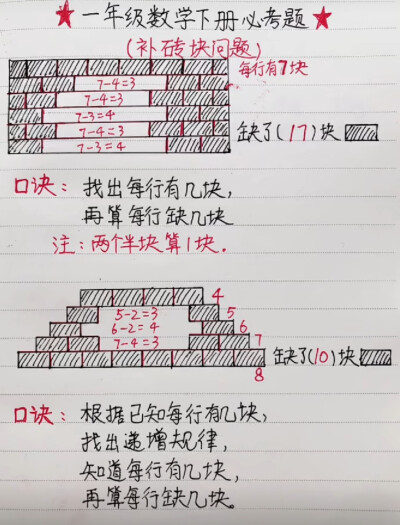 ★一年级数学下册必考题★
(补砖块问题)
每行有7块
7-4=3
7-4=3
7-3=4
7-4=3
7-3=4
缺了(17)块
口诀：找出每行有几块，
再算每行缺几块
注：两个半块算1块.
4
5-2=3 5
6-2=4 6
7-4=3 7
8
缺了(10)块
口诀：根据已知每行有几块，
找出递增规律，
知道每行有几块，
再算每行缺几块。